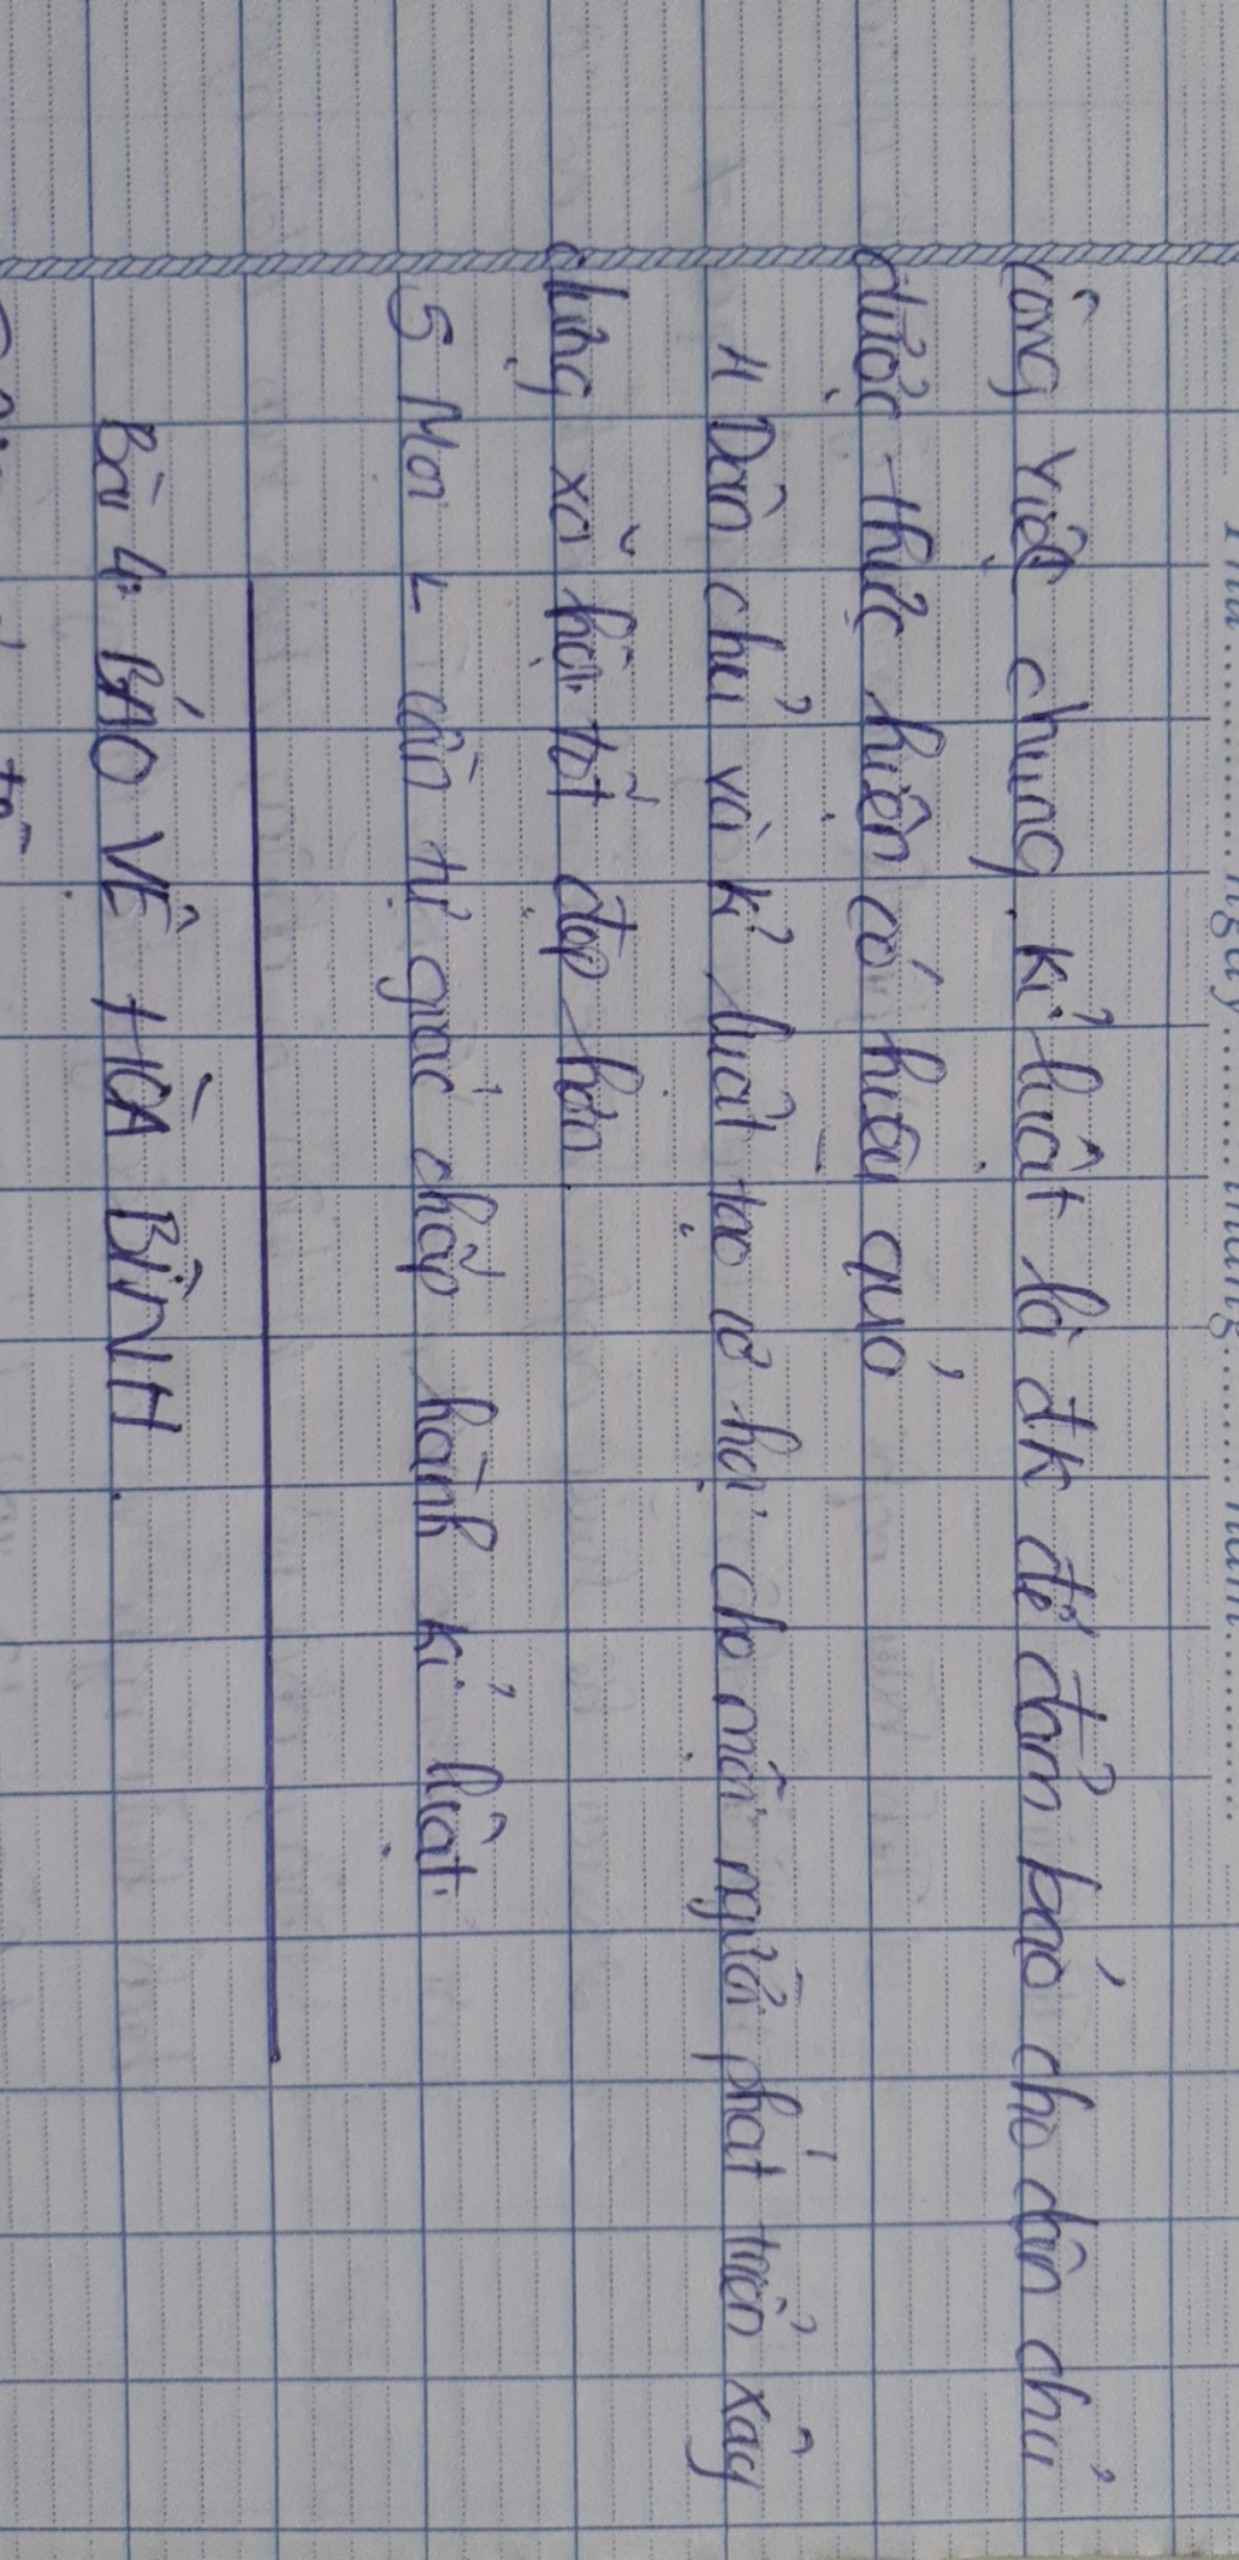 Thứ........ngày........tháng........năm........
công việc chung. kỉ luật là đk để đảm báo cho dân chủ
được thực hiện có hiệu quả
4 Dân chủ và kỉ luật tạo cơ hội cho mỗi người phát triển xây
dựng xã hội tốt đẹp hơn.
5 Mọi L cần tự giác chấp hành kỉ luật.
Bài 4: BÁO VỆ HÒA BÌNH.